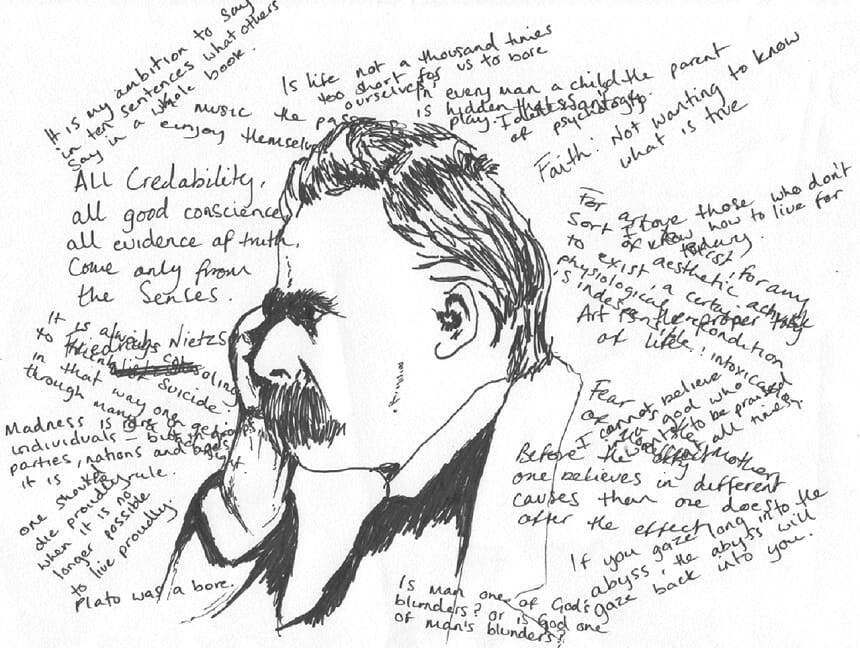 It is my ambition to say
in ten sentences what others
say in a whole book.
Is life not a thousand times
too short for us to bore
ourselves,
In every man a child
is hidden that
play.
the parent
of psychology.
music the
enjoy themselves
Faith: Not wanting to know
what is true
All Credability,
all good conscience,
all evidence of truth,
Come only from
the Senses.
I love those who don't
know how to live for
today.
For art to
exist, for any
Sort of aesthetic activity
to exist, a certain
physiological precondition
is indespensible: intoxication
Art is the proper task
of life.
It is always
to think of
suicide.
in that way one
through many
Nietzs
Madness is rare in
individuals – but in groups
parties, nations and ages
it is the rule.
one should
die proudly
when it is no
longer possible
to live proudly.
Plato was a bore.
Fear
I cannot believe
in a god who
wants to be praised
all the time.
of
mother
Before the effect
one believes in different
causes than one does
after the effect
If you gaze long into the
abyss, the abyss will
gaze back into you.
Is man one of God's
blunders? or is god one
of man's blunders?